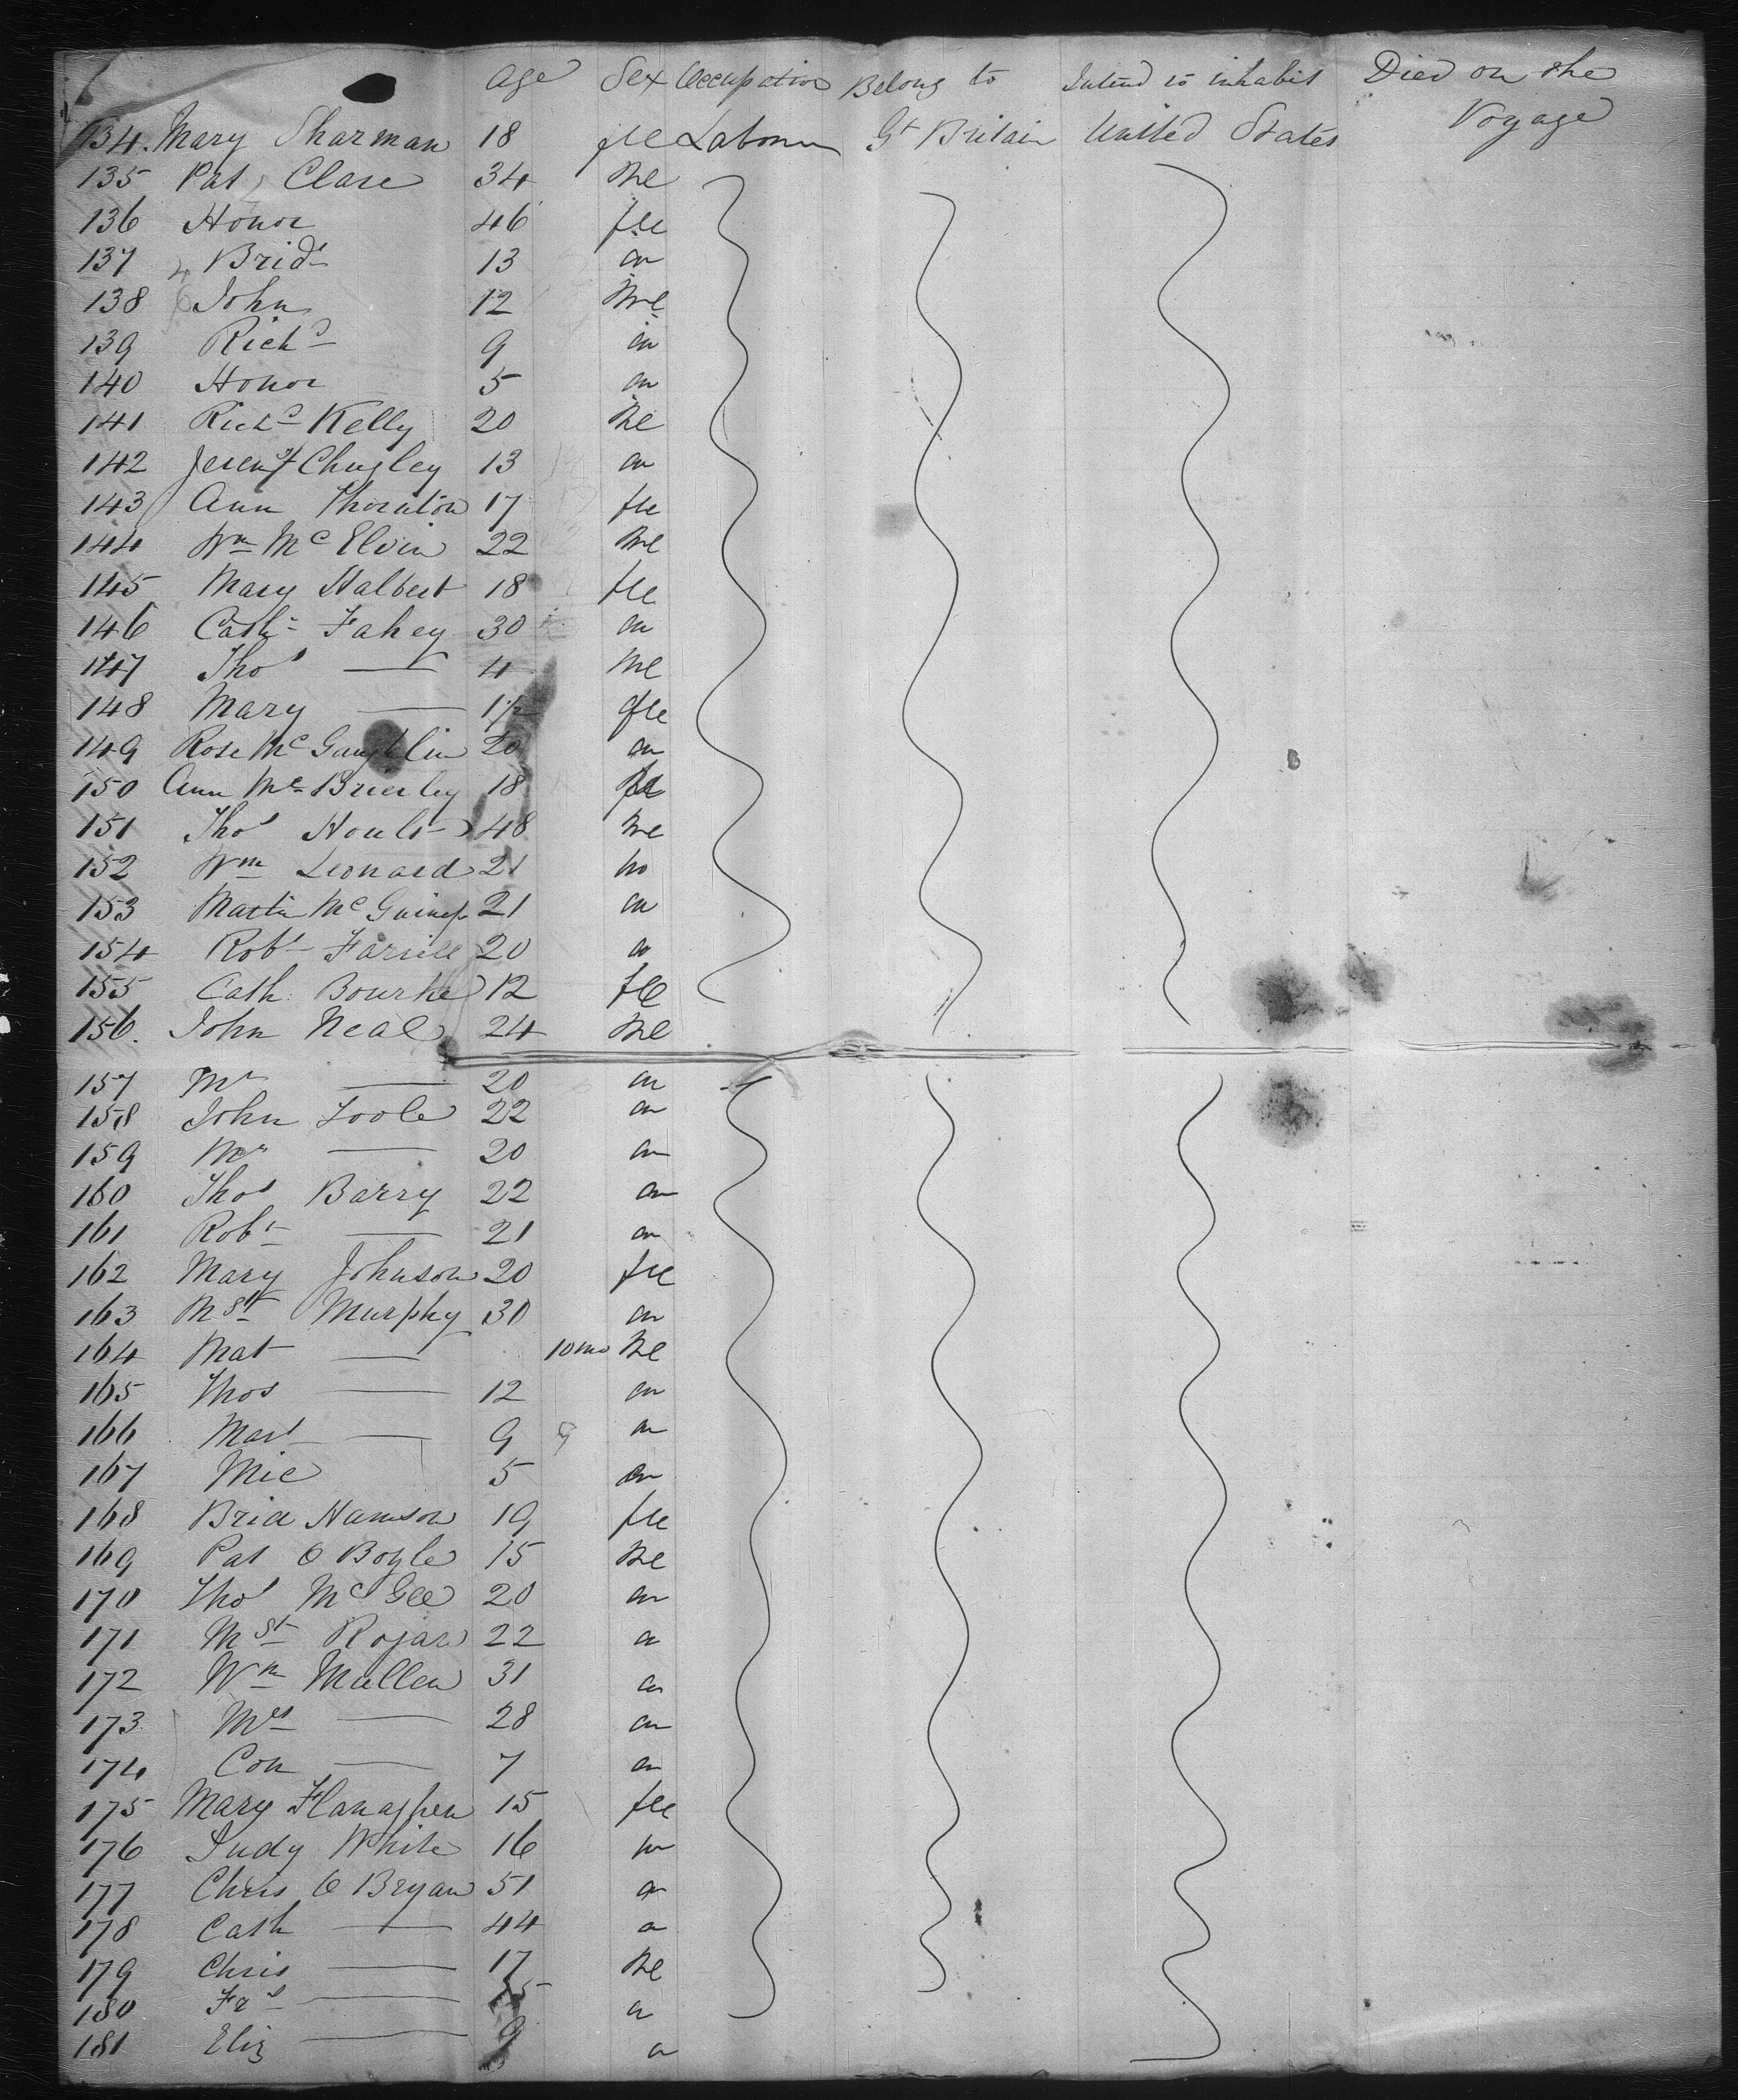 Age Sex Occupation Belong to Intend to inhabit Died on the Voyage
134. Mary Sharman 18 fle Labourer Gt Britain United States
135 Pat Clare 34 Me
136 Honor 46 fle
137 Bridt 13 do
138 John 12 Me
139 Richd 9 do
140 Honor 5 do
141 Richd Kelly 20 Me
142 Jeremy 13 do
143 Ann Thornton 17 fle
144 Wm McElvin 22 Me
145 Mary Halbert 18 fle
146 Cath Fahey 30 do
147 Thos — 4 Me
148 Mary — 1½ fle
149 Rose McGaughlin 20 do
150 Ann McBrierley 18 fle
151 Thos Hoult 48 Me
152 Wm Leonard 21 do
153 Martin McGuiness 21 do
154 Robt Farrell 20 do
155 Cath Bourke 12 fle
156. John Neal 24 Me
157 Mr — 20 do
158 John Toole 22 do
159 Mr — 20 do
160 Thos Barry 22 do
161 Robt — 21 do
162 Mary Johnson 20 fle
163 Mgt Murphy 30 do
164 Mat — 10 mo Me
165 Thos — 12 do
166 Mart — 9 9 do
167 Mic 5 do
168 Brid 19 fle
169 Pat O Boyle 15 Me
170 Thos McGee 20 do
171 22 do
172 Wm Mullen 31 do
173 Mrs — 28 do
174 Con — 7 do
175 Mary Flanaghen 15 fle
176 Judy White 16 do
177 Chris O Bryan 51 do
178 Cath — 44 do
179 Chris — 17 Me
180 Frs — 15 do
181 Eliz — 9 do